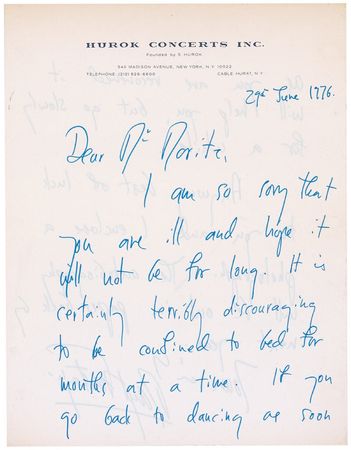 HUROK CONCERTS INC.
Founded by S. HUROK
540 MADISON AVENUE, NEW YORK, N.Y. 10022
TELEPHONE (212) CABLE: HURAT, N.Y.
29th June 1976.
Dear Mr Moritz,
I am so sorry that
you are ill and hope it
will not be for long. It is
certainly terribly discouraging
to be confined to bed for
months at a time. If you
go back to dancing as soon